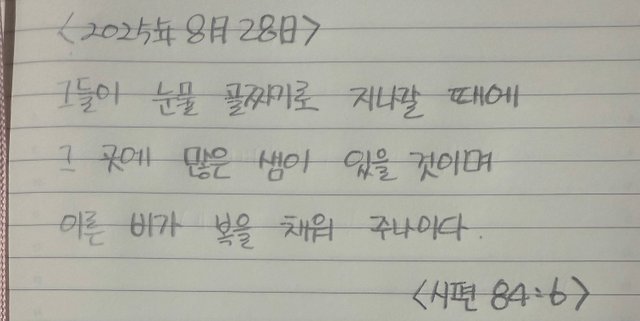 <2025年 8月 28日>
그들이 눈물 골짜기로 지나갈 때에
그 곳에 많은 샘이 있을 것이며
이른 비가 복을 채워 주나이다.
<시편 84:6>